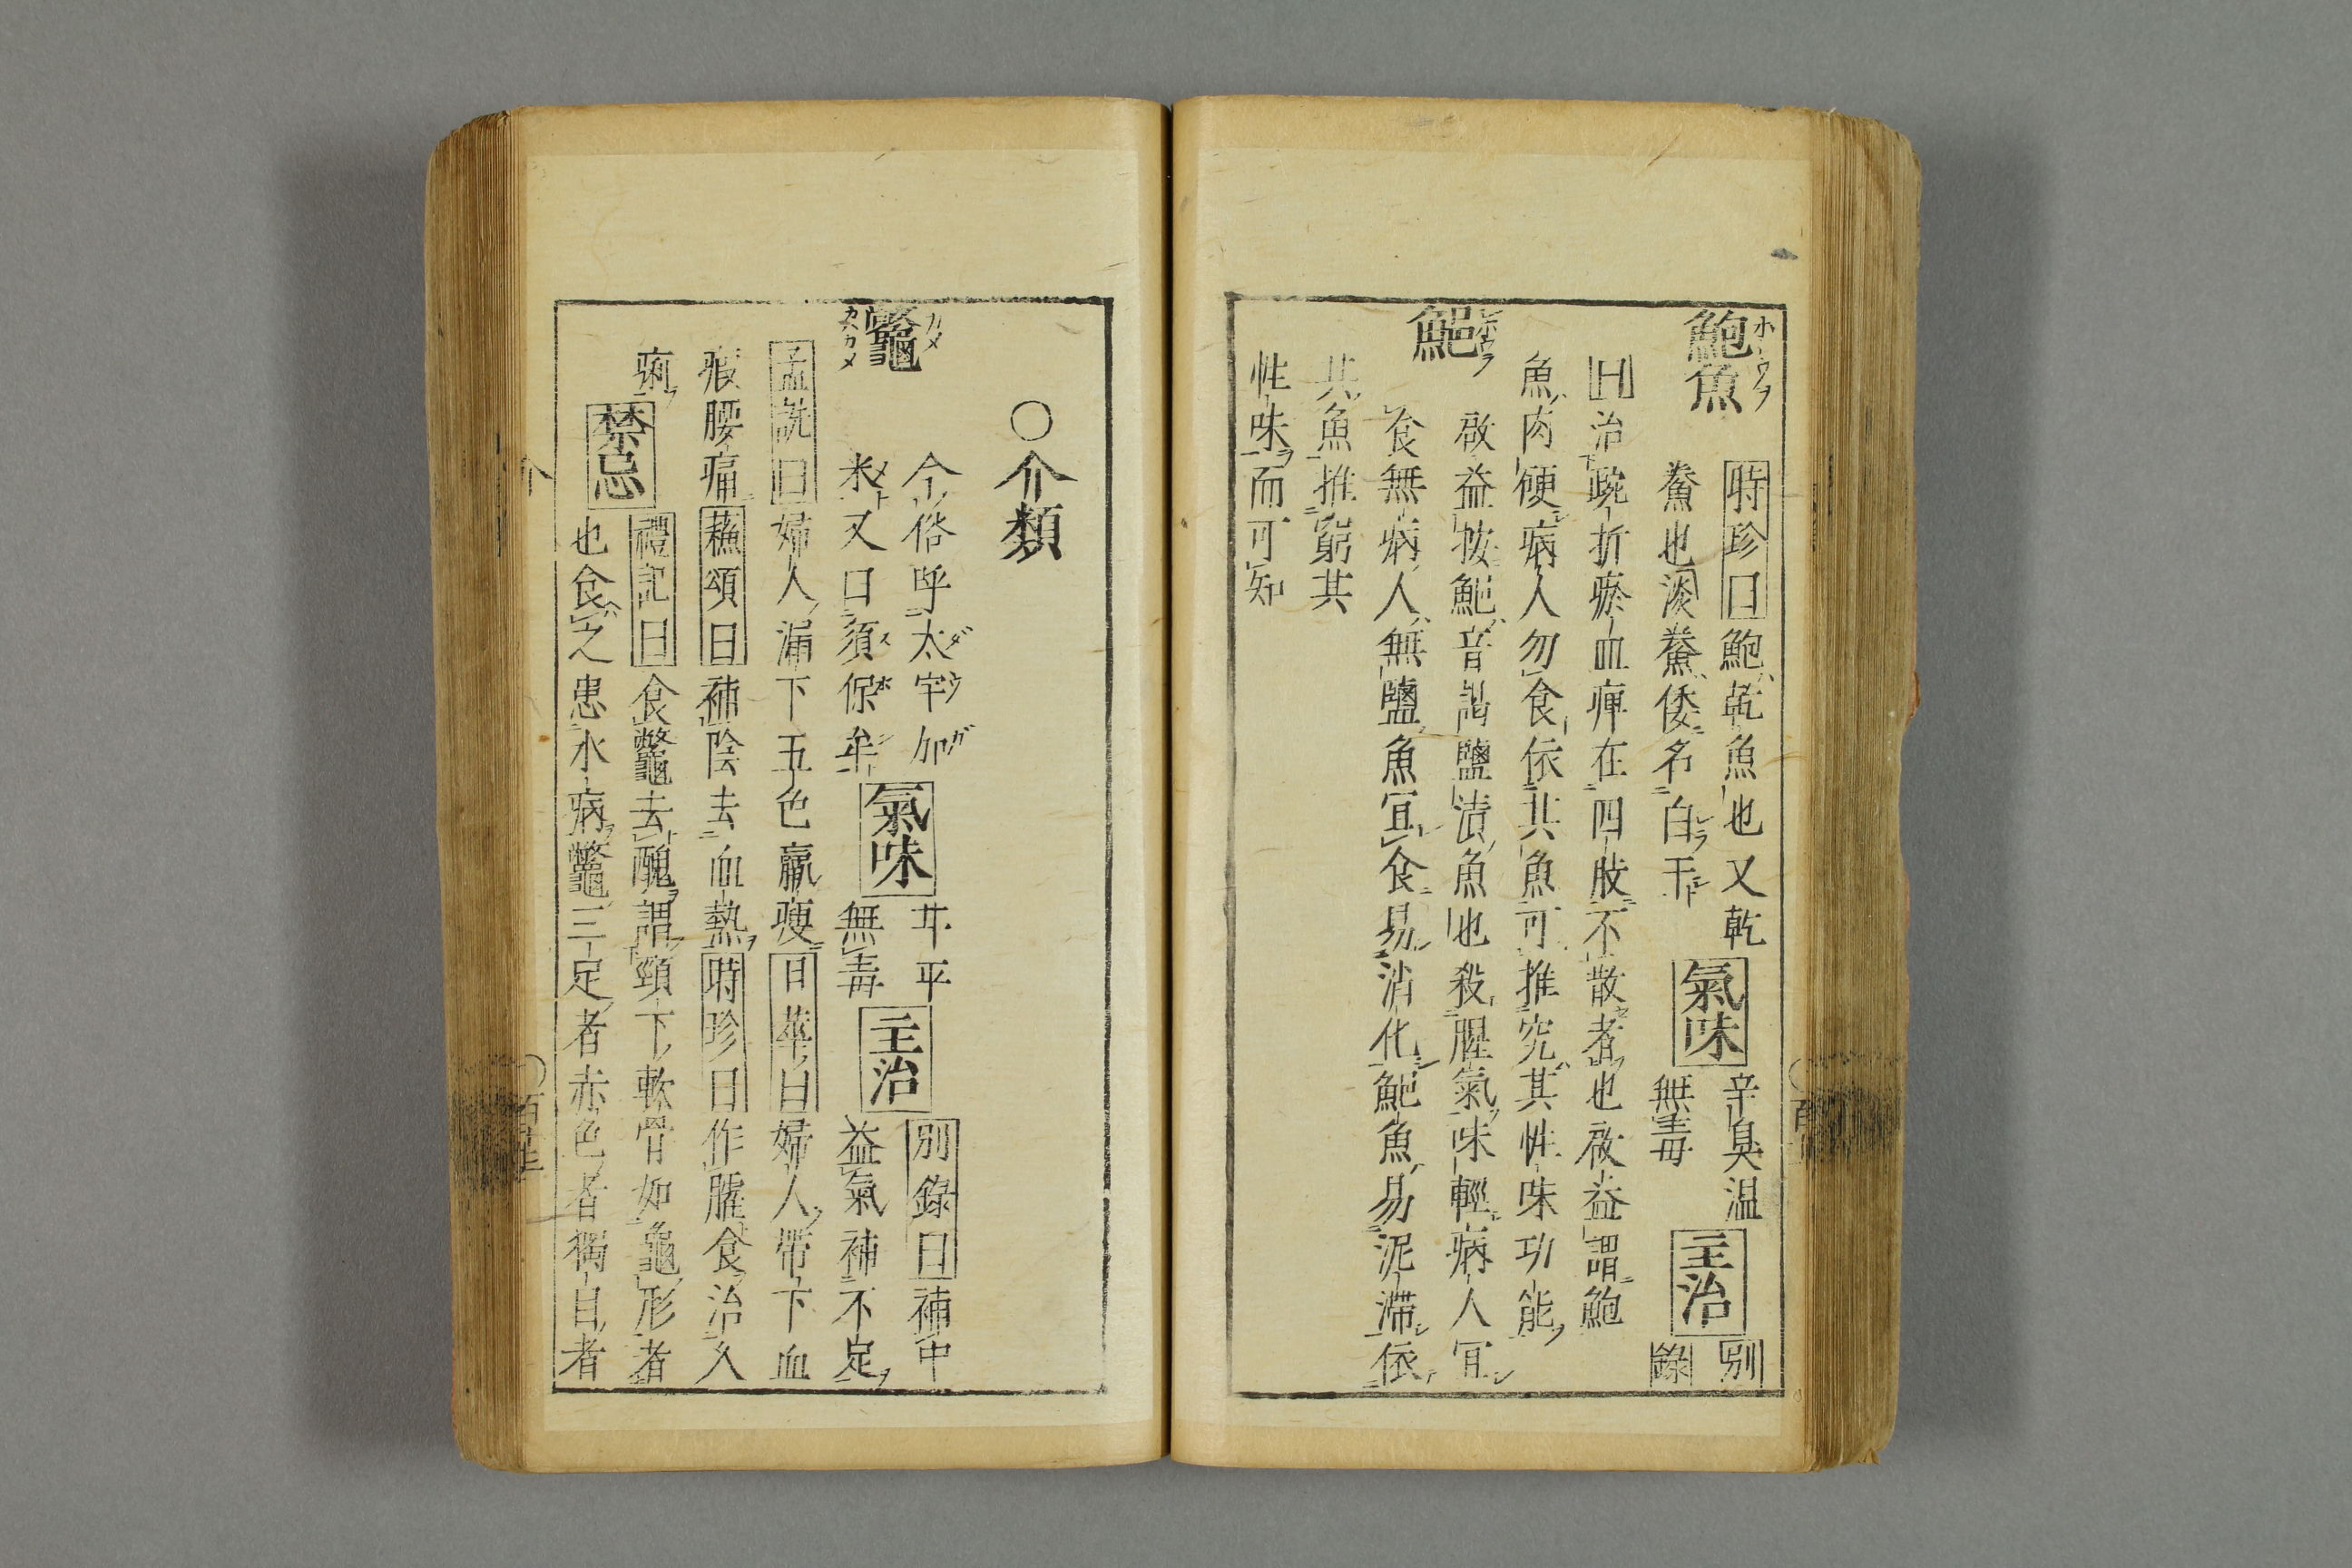 鮑魚
時珍曰鮑乾魚也又乾
鮝也淡鮝倭名白干
氣味
辛臭温
無毒
主治
別
錄
曰治踠折瘀血痺在四肢不散者也啟益謂鮑
魚肉硬病人勿食依共魚可推究其性味功能
䱒
啟益按䱒音謁鹽漬魚也殺腥氣味輕病人冝
食無病人無鹽魚冝食易消化䱒魚易泥滯依
共魚推窮其
性味而可知
○介類
鼈
今俗呼太宇加
米又曰須保牟
氣味
甘平
無毒
主治
別錄曰補中
益氣補不足
孟詵曰婦人漏下五色羸瘦日華曰婦人帶下血
瘕腰痛蘇頌曰補陰去血熱時珍曰作臛食治久
痢
禁忌
禮記曰食鼈去醜謂頸下軟骨如龜形者
也食之患水病鼈三足者赤色者獨目者